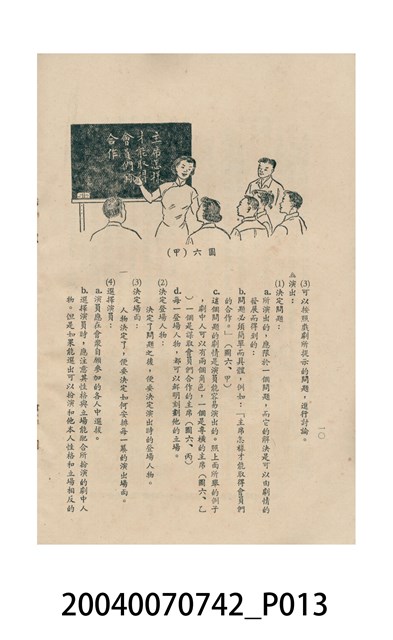 主席怎樣
才能取得
會員們的
合作
圖六(甲)
一〇
(3)可以按照戲劇所提示的問題，進行討論。
演出：
(1)決定問題：
a.所演出的，應限於一個問題，而它的解決是可以由劇情的
發展而得到的。
b.問題必須簡單而具體，例如：「主席怎樣才能取得會員們
的合作。」(圖六、甲)
c.這個問題的劇情是演員能容易演出的。照上面所舉的例子
，劇中人可以有兩個角色，一個是專橫的主席(圖六、乙
)一個是謀取會員們合作的主席(圖六、丙)
d.每一登場人物，都可以鮮明刻劃他的立場。
(2)決定登場人物：
決定了問題之後，便要決定演出時的登場人物。
(3)決定場面：
人物決定了，便要決定如何安排每一幕的演出場面。
(4)選擇演員：
a.演員應在會眾自願參加的各人中選拔。
b.選擇演員時，應注意其性格與立場能配合所扮演的劇中人
物。但是如果能選出可以扮演和他本人性格和立場相反的
20040070742_P013